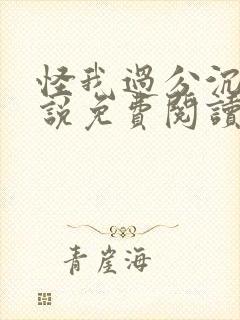 怪我過分沉
說免費閱讀
青崖海